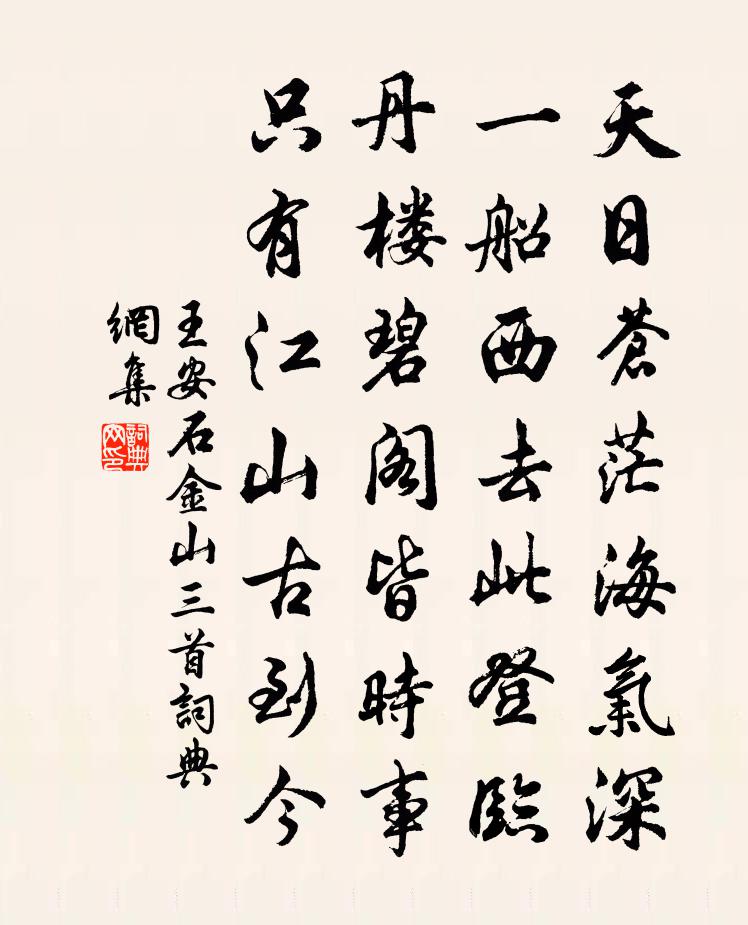 天日蒼茫海氣深
一船西去此登臨
丹楼碧阁皆時事
只有江山古到今
王安石金山三首詞典
網集
詞典網印